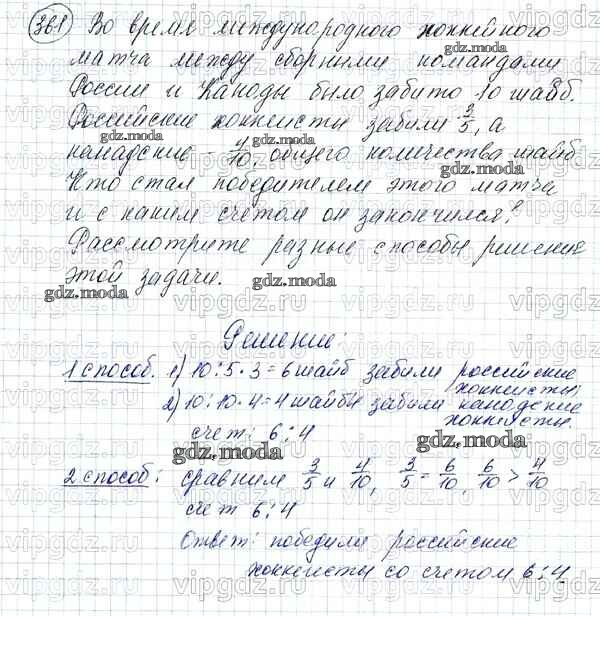 361 Во время международного хоккейного
матча между сборными командами
России и Канады было забито 10 шайб.
Российские хоккеисты забили 3/5, а
канадские - 4/10, общего количества шайб
Кто стал победителем этого матча
и с каким счетом он закончился?
Рассмотрите разные способы решения
этой задачи.
Решение:
1 способ. 1) 10:5·3=6 шайб забили российские
хоккеисты,
2) 10:10·4=4 шайбы забили канадские
хоккеисты.
счет: 6:4
2 способ: сравним 3/5 и 4/10, 3/5=6/10, 6/10>4/10
счет 6:4
Ответ: победили российские
хоккеисты со счетом 6:4